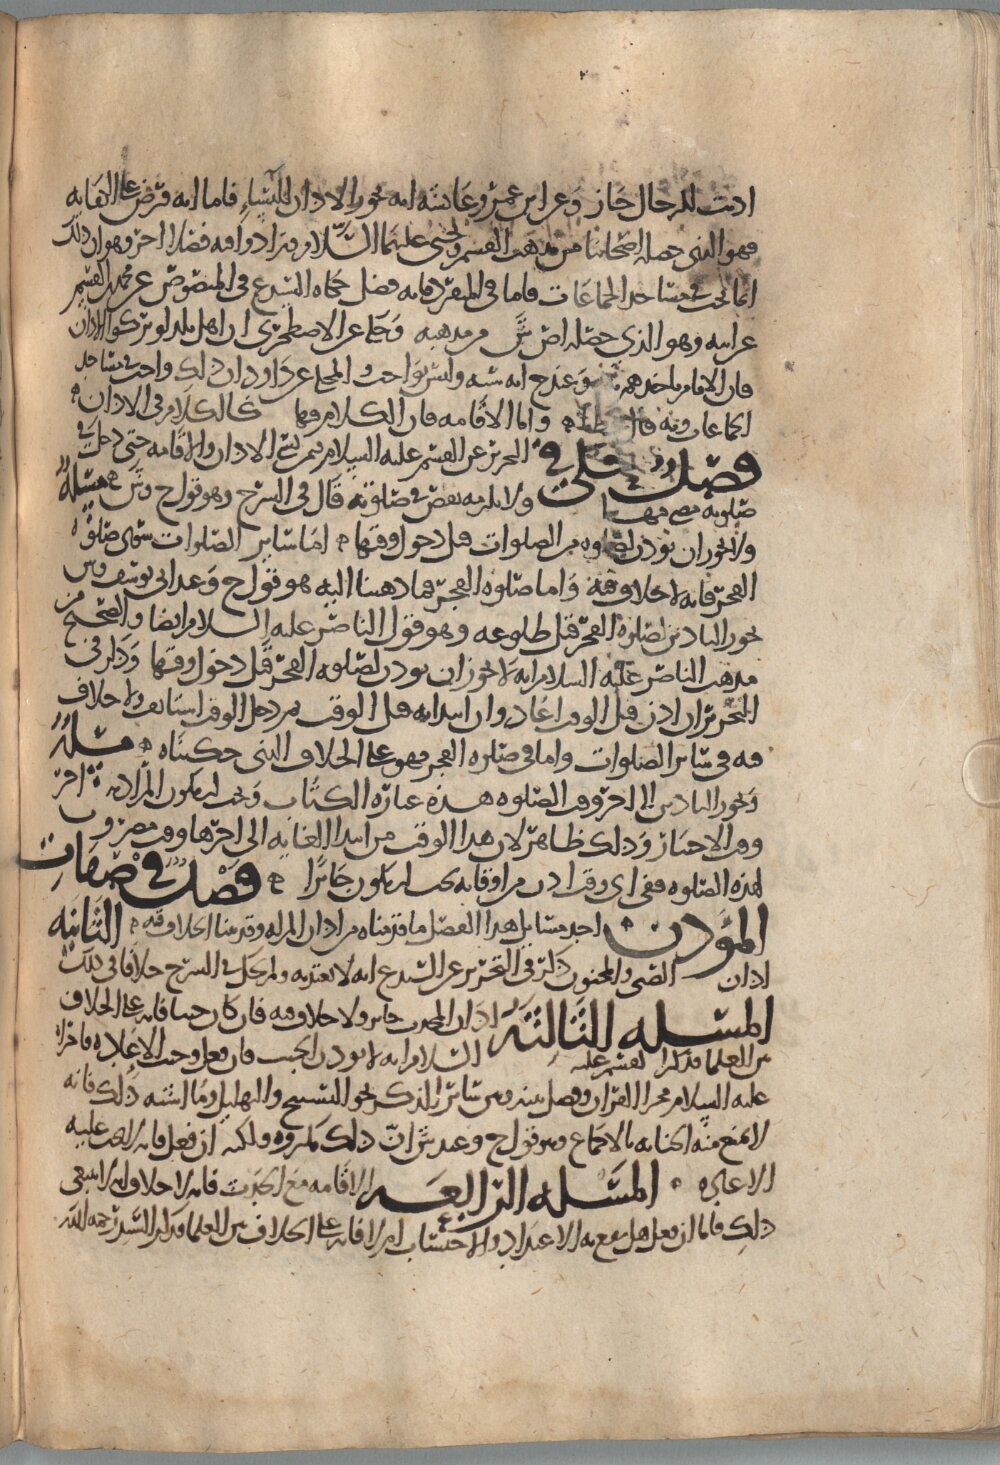 اذنت لدرجال جاز وعن ابن عمر وعائشة انه يجوز الاذان للنساء فاما انه فرض على الكفاية
فهو الذي حصله اصحابنا من مذهب القسم ويحيى عليهما السلام وفيه فصل اخر وهو ان ذلك
انما يجب في مساجد الجماعات فاما في المنفرد فانه فضل حكاه السيد ع في المنصوص عن محمد بن القسم
عن ابيه وهو الذي حصله اص ش من مذهبه وحكى عن الاصطخري ان اهل بلد لو تركوا الاذان
فان الامام ياخذهم وعند ح انه سنة وليس بواجب والمحكي عن داود ان ذلك واجب في مساجد
الجماعات واما الاقامة فان الكلام فيها كالكلام في الاذان
فصل قال في التحرير عن القسم عليه السلام فيمن نسي الاذان والاقامة حتى دخل في
صلوته مضى فيها ولا يلزمه نقص في صلوته قال في الشرح وهو قول ح وش مسئلة
ولا يجوز ان يؤذن لصلوة من الصلوات قبل دخول وقتها اما سائر الصلوات سوى صلوة
الفجر فانه لا خلاف فيه واما صلوة الفجر فما ذهبنا اليه هو قول ح وعند ابي يوسف وش
يجوز التاذين لصلوة الفجر قبل طلوعه وهو قول الناصر عليه السلام ايضا والصحيح من
مذهب الناصر عليه السلام انه لا يجوز ان يؤذن لصلوة الفجر قبل دخول وقتها وذكر في
التحرير ان اذن قبل الوقت اعاد وان ابتدا به قبل الوقت ثم دخل الوقت استانف ولا خلاف
فيه في سائر الصلوات واما في صلوة الفجر فهو على الخلاف الذي حكيناه مسئلة
ويجوز التاذين الى اخر وقت الصلوة هذه عبارة الكتاب ويجب ان يكون المراد به اخر
وقت الاختيار وذلك ظاهر لان هذا الوقت من ابتدا الغاية الى اخرها وقت مضروب
لهذه الصلوة ففي اي وقت اذن من اوقاته يجب ان يكون جائزا فصل في صفات
المؤذن احد مسائل هذا الفصل ما قدمناه من اذان المراة وقد بينا الخلاف فيه الثانية
اذان الصبي والمجنون ذكر في التحرير عن السيد ع انه لا يعتد به ولم يحك في الشرح خلافا في ذلك
المسئلة الثالثة اذان المحدث جائز ولا خلاف فيه فان كان جنبا فانه على الخلاف
بين العلما فذكر القسم عليه السلام انه لا يؤذن الجنب فان فعل وجب الاعادة
عليه السلام مجرا القران وفصل بينه وبين سائر الذكر نحو التسبيح والتهليل وما اشبه ذلك فانه
لا يمنع منه الجنابة بالاجماع وهو قول ح وعند ش ان ذلك مكروه ولكنه ان فعل فانه لا يجب عليه
الاعادة المسئلة الرابعة الاقامة مع الحدث فانه لا خلاف انه لا ينبغي
ذلك فاما ان فعل هل يقع به الاعتداد والاحتساب ام لا فانه على الخلاف بين العلما فذكر السيد رحمه الله